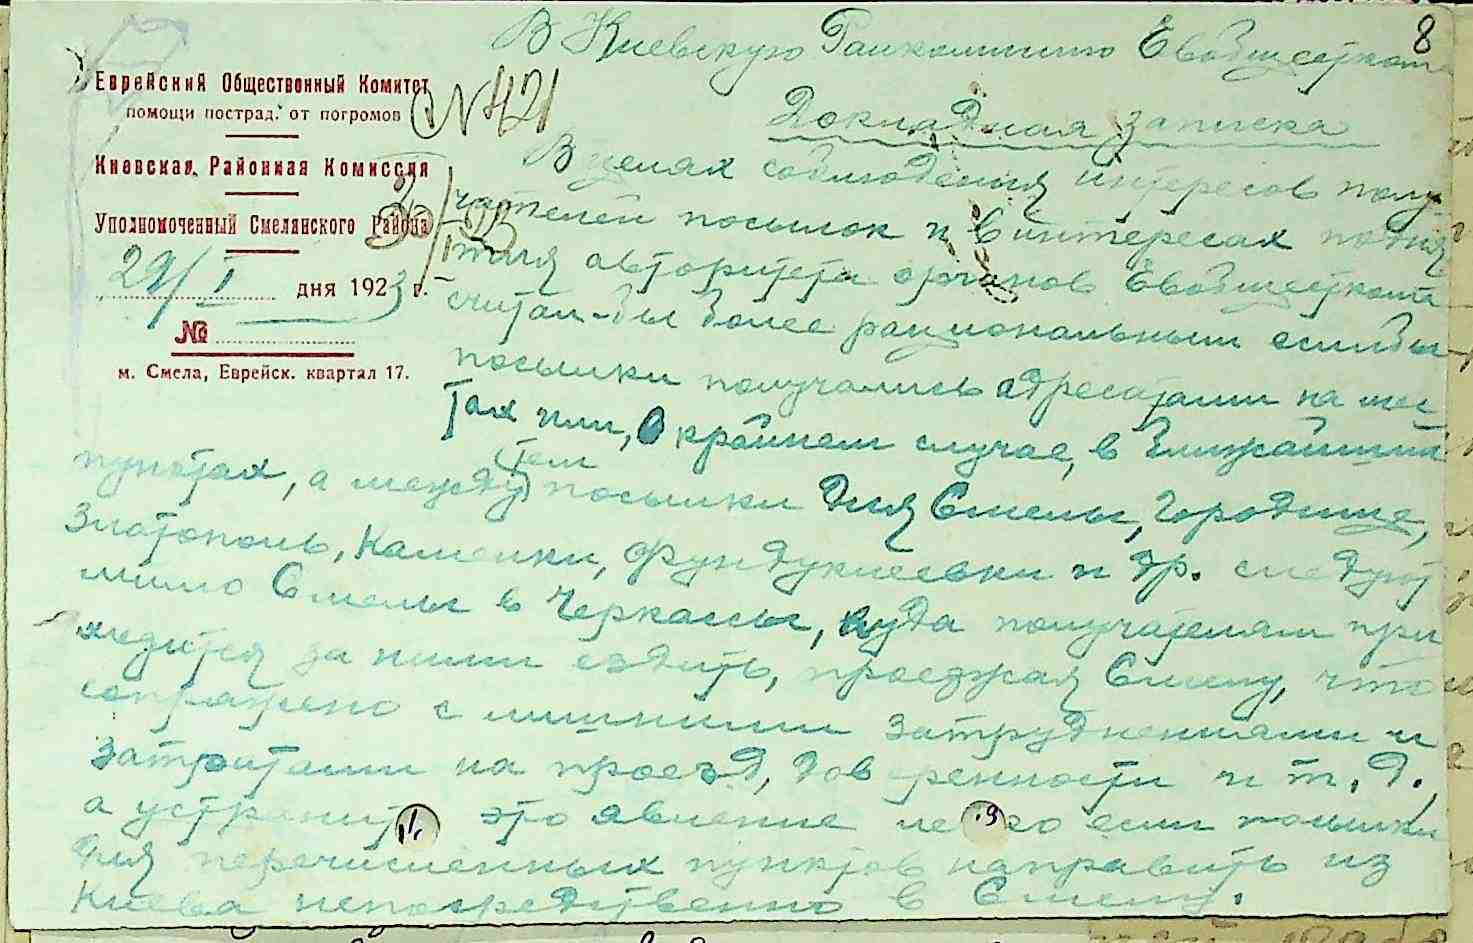 8
В Киевскую Райкомиссию Евобщесткома
Еврейский Общественный Комитет
помощи пострад. от погромов
№ 421
Киевская Районная Комиссия
Уполномоченный Смелянского Района
29/I дня 1923 г.
№
м. Смела, Еврейск. квартал 17.
Докладная записка
В целях соблюдения интересов полу-
чателей посылок и в интересах подня-
тия авторитета органов Евобщесткома
считал-бы более рациональным если бы
посылки получались адресатами на мес-
тах или, в крайнем случае, в ближайших
пунктах, а между тем посылки для Смелы, Городище,
Златополь, Каменки, Фундуклеевки и др. следуют
мимо Смелы в Черкассы, куда получателям при
ходится за ними ездить, проезжая Смелу, что
сопряжено с лишними затруднениями и
затратами на проезд, доверенности и т. д.,
а устранить это явление легко если посылки
для перечисленных пунктов направить из
Киева непосредственно в Смелу.